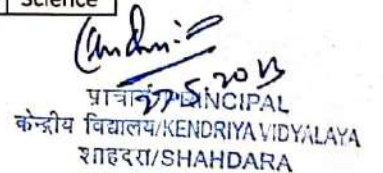 Science
प्राचार्य/PRINCIPAL
केन्द्रीय विद्यालय/KENDRIYA VIDYALAYA
शाहदरा/SHAHDARA